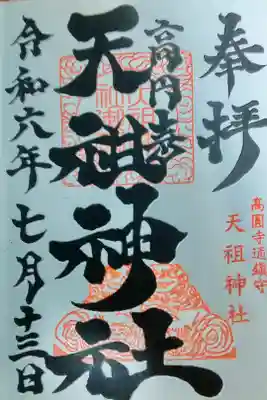 奉拝
高圓寺道鎮守
天祖神社
高円寺
天祖神社
令和六年七月十三日